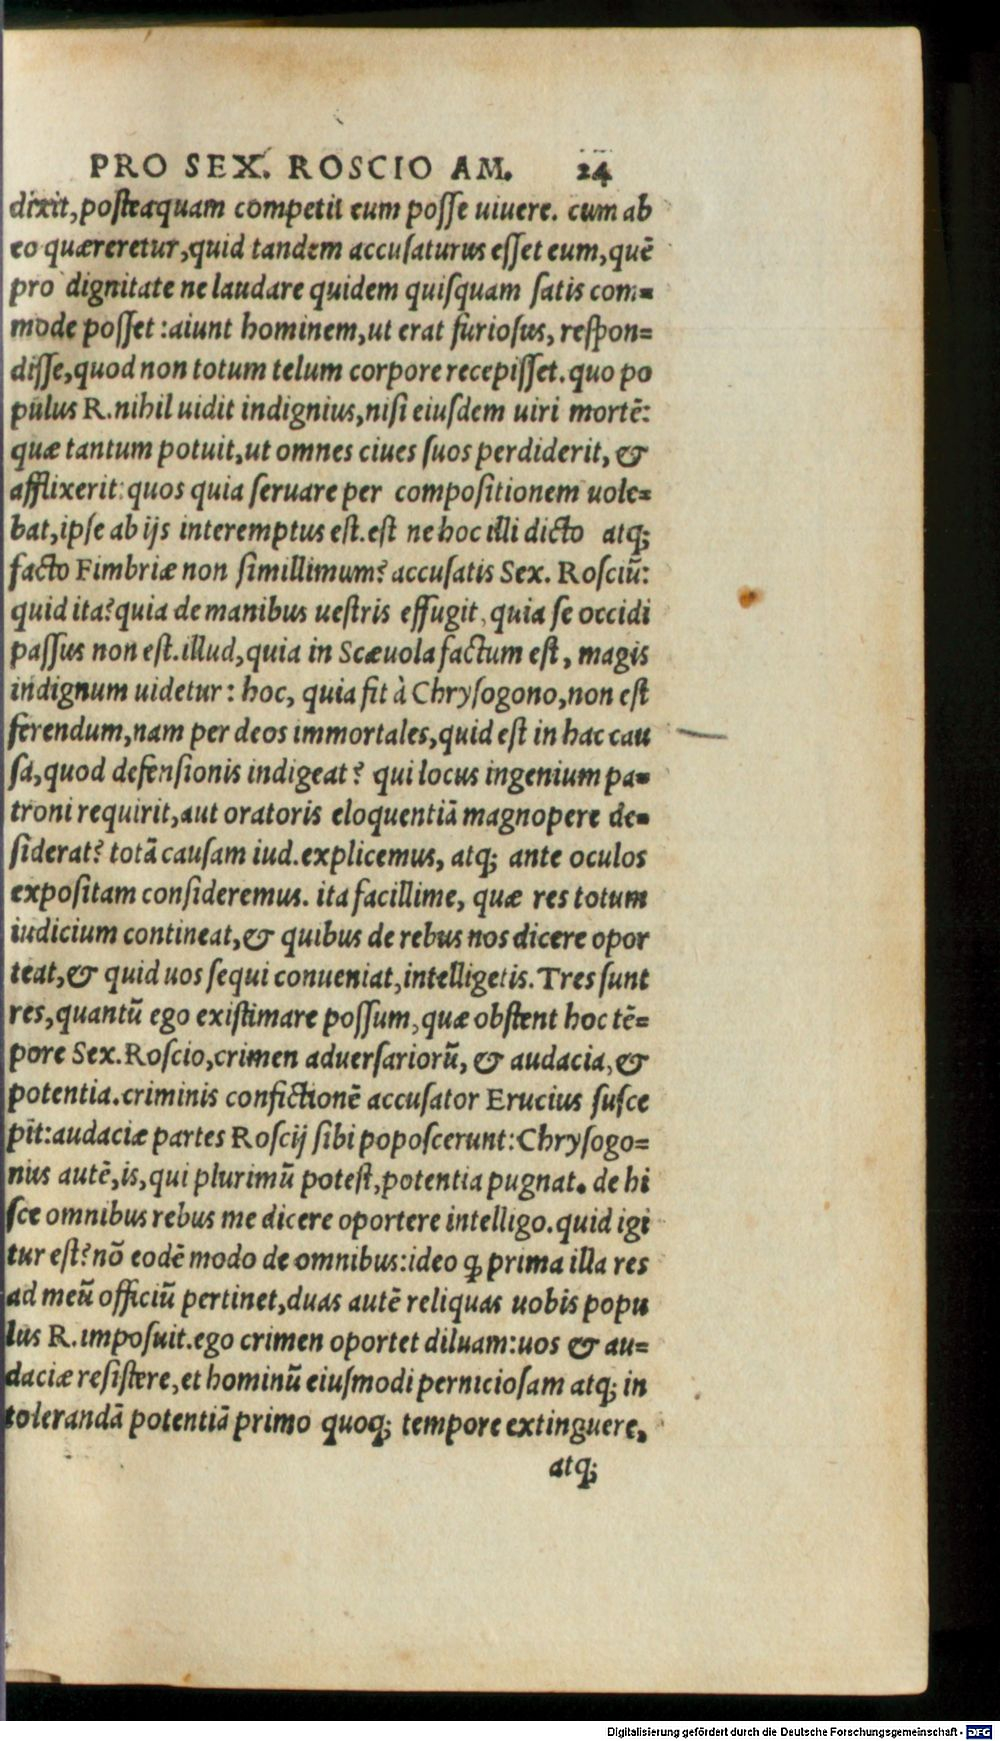 PRO SEX. ROSCIO AM. 24
dixit,posteaquam competit eum posse uiuere. cum ab
eo quæreretur,quid tandem accusaturus esset eum,quē
pro dignitate ne laudare quidem quisquam satis com=
mode posset:aiunt hominem,ut erat furiosus, respon=
disse,quod non totum telum corpore recepisset.quo po
pulus R.nihil uidit indignius,nisi eiusdem uiri mortē:
quæ tantum potuit,ut omnes ciues suos perdiderit, &
afflixerit:quos quia seruare per compositionem uole=
bat,ipse ab ijs interemptus est.est ne hoc illi dicto atq;
facto Fimbriæ non simillimum? accusatis Sex. Rosciū:
quid ita?quia de manibus uestris effugit, quia se occidi
passus non est.illud,quia in Scæuola factum est, magis
indignum uidetur: hoc, quia fit à Chrysogono,non est
ferendum,nam per deos immortales,quid est in hac cau
sa,quod defensionis indigeat? qui locus ingenium pa=
troni requirit,aut oratoris eloquentiā magnopere de=
siderat? totā causam iud.explicemus, atq; ante oculos
expositam consideremus. ita facillime, quæ res totum
iudicium contineat,& quibus de rebus nos dicere opor
teat,& quid uos sequi conueniat,intelligetis.Tres sunt
res,quantū ego existimare possum,quæ obstent hoc tē=
pore Sex.Roscio,crimen aduersariorū, & audacia,&
potentia.criminis confictionē accusator Erucius susce
pit:audaciæ partes Roscij sibi poposcerunt:Chrysogo=
nius autē,is,qui plurimū potest,potentia pugnat. de hi
sce omnibus rebus me dicere oportere intelligo.quid igi
tur est?nō eodē modo de omnibus:ideo ꝙ prima illa res
ad meū officiū pertinet,duas autē reliquas uobis popu
lus R.imposuit.ego crimen oportet diluam:uos & au=
daciæ resistere,et hominū eiusmodi perniciosam atq; in
tolerandā potentiā primo quoq; tempore extinguere,
atq;
Digitalisierung gefördert durch die Deutsche Forschungsgemeinschaft - DFG